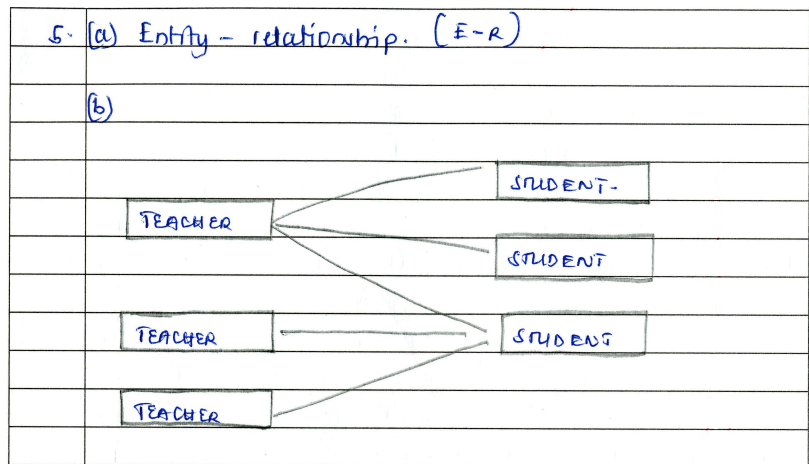 5. (a) Entity - relationship. (E-R)
(b)
STUDENT-
TEACHER
STUDENT
TEACHER
STUDENT
TEACHER